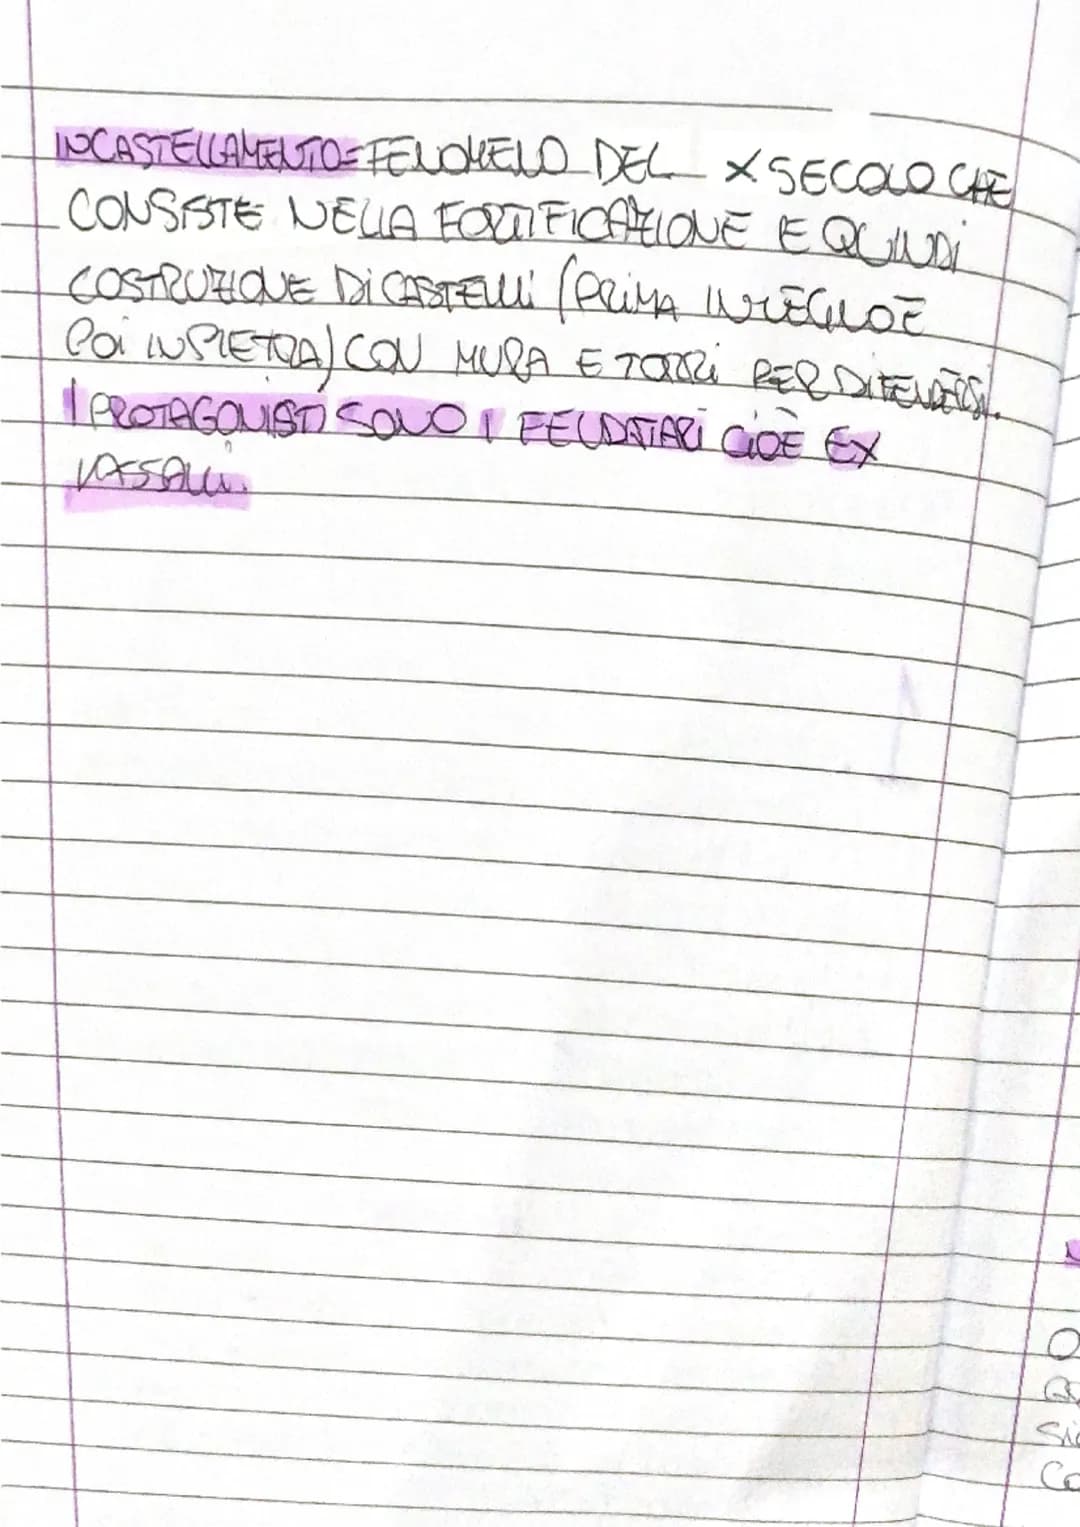 INCASTELLAMENTO= FENOMENO DEL X SECOLO CHE
CONSISTE NELLA FORTIFICAZIONE E QUINDI
COSTRUZIONE DI CASTELLI (PRIMA IN LEGNO E
POI IN PIETRA) CON MURA E TORRI PER DIFENDERSI.
I PROTAGONISTI SONO I FEUDATARI CIOÈ EX
VASSALLI.
O
Si
Co